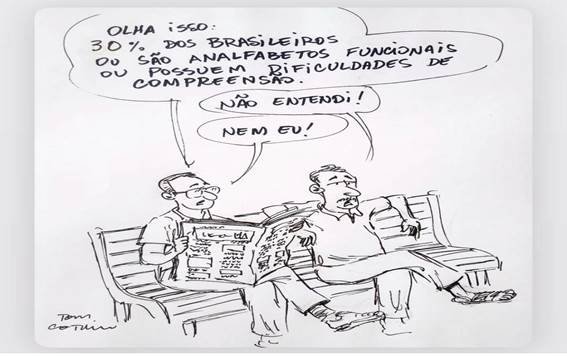 OLHA ISSO:
30% DOS BRASILEIROS
OU SÃO ANALFABETOS FUNCIONAIS
OU POSSUEM DIFICULDADES DE
COMPREENSÃO.
NÃO ENTENDI!
NEM EU!
TOM